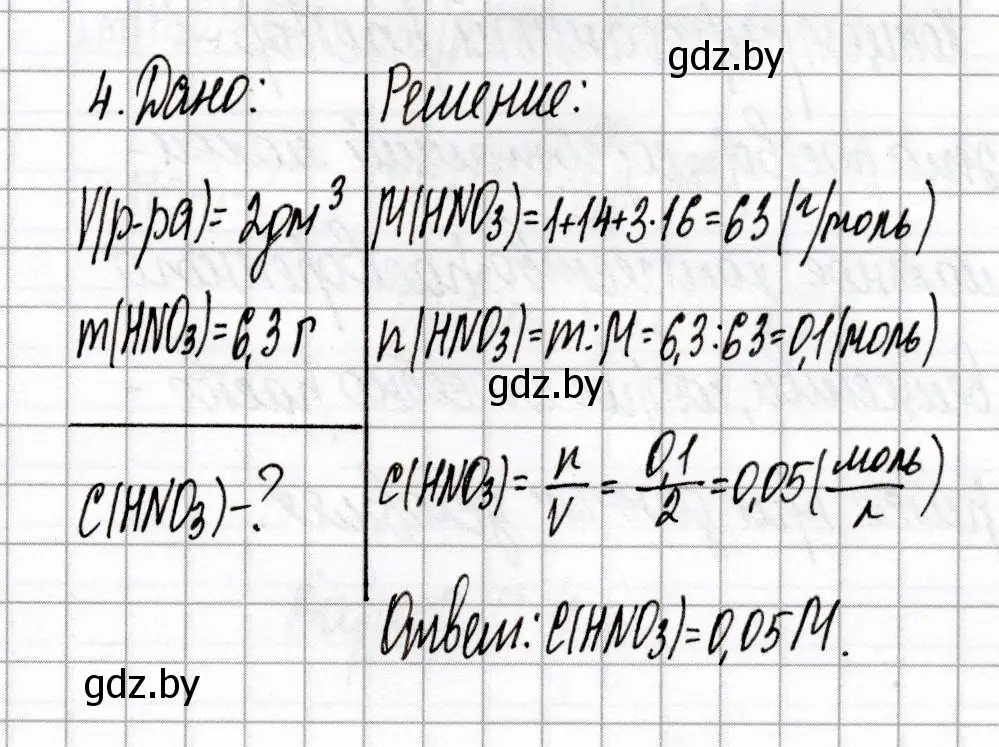 gdz.by
4. Дано:
V(р-ра) = 2дм³
m(HNO₃) = 6,3 г
C(HNO₃) - ?
Решение:
M(HNO₃) = 1+14+3·16 = 63 (г/моль)
n(HNO₃) = m : M = 6,3 : 63 = 0,1 (моль)
gdz.by
C(HNO₃) = n/V = 0,1/2 = 0,05 (моль/л)
Ответ: C(HNO₃) = 0,05 М.
gdz.by